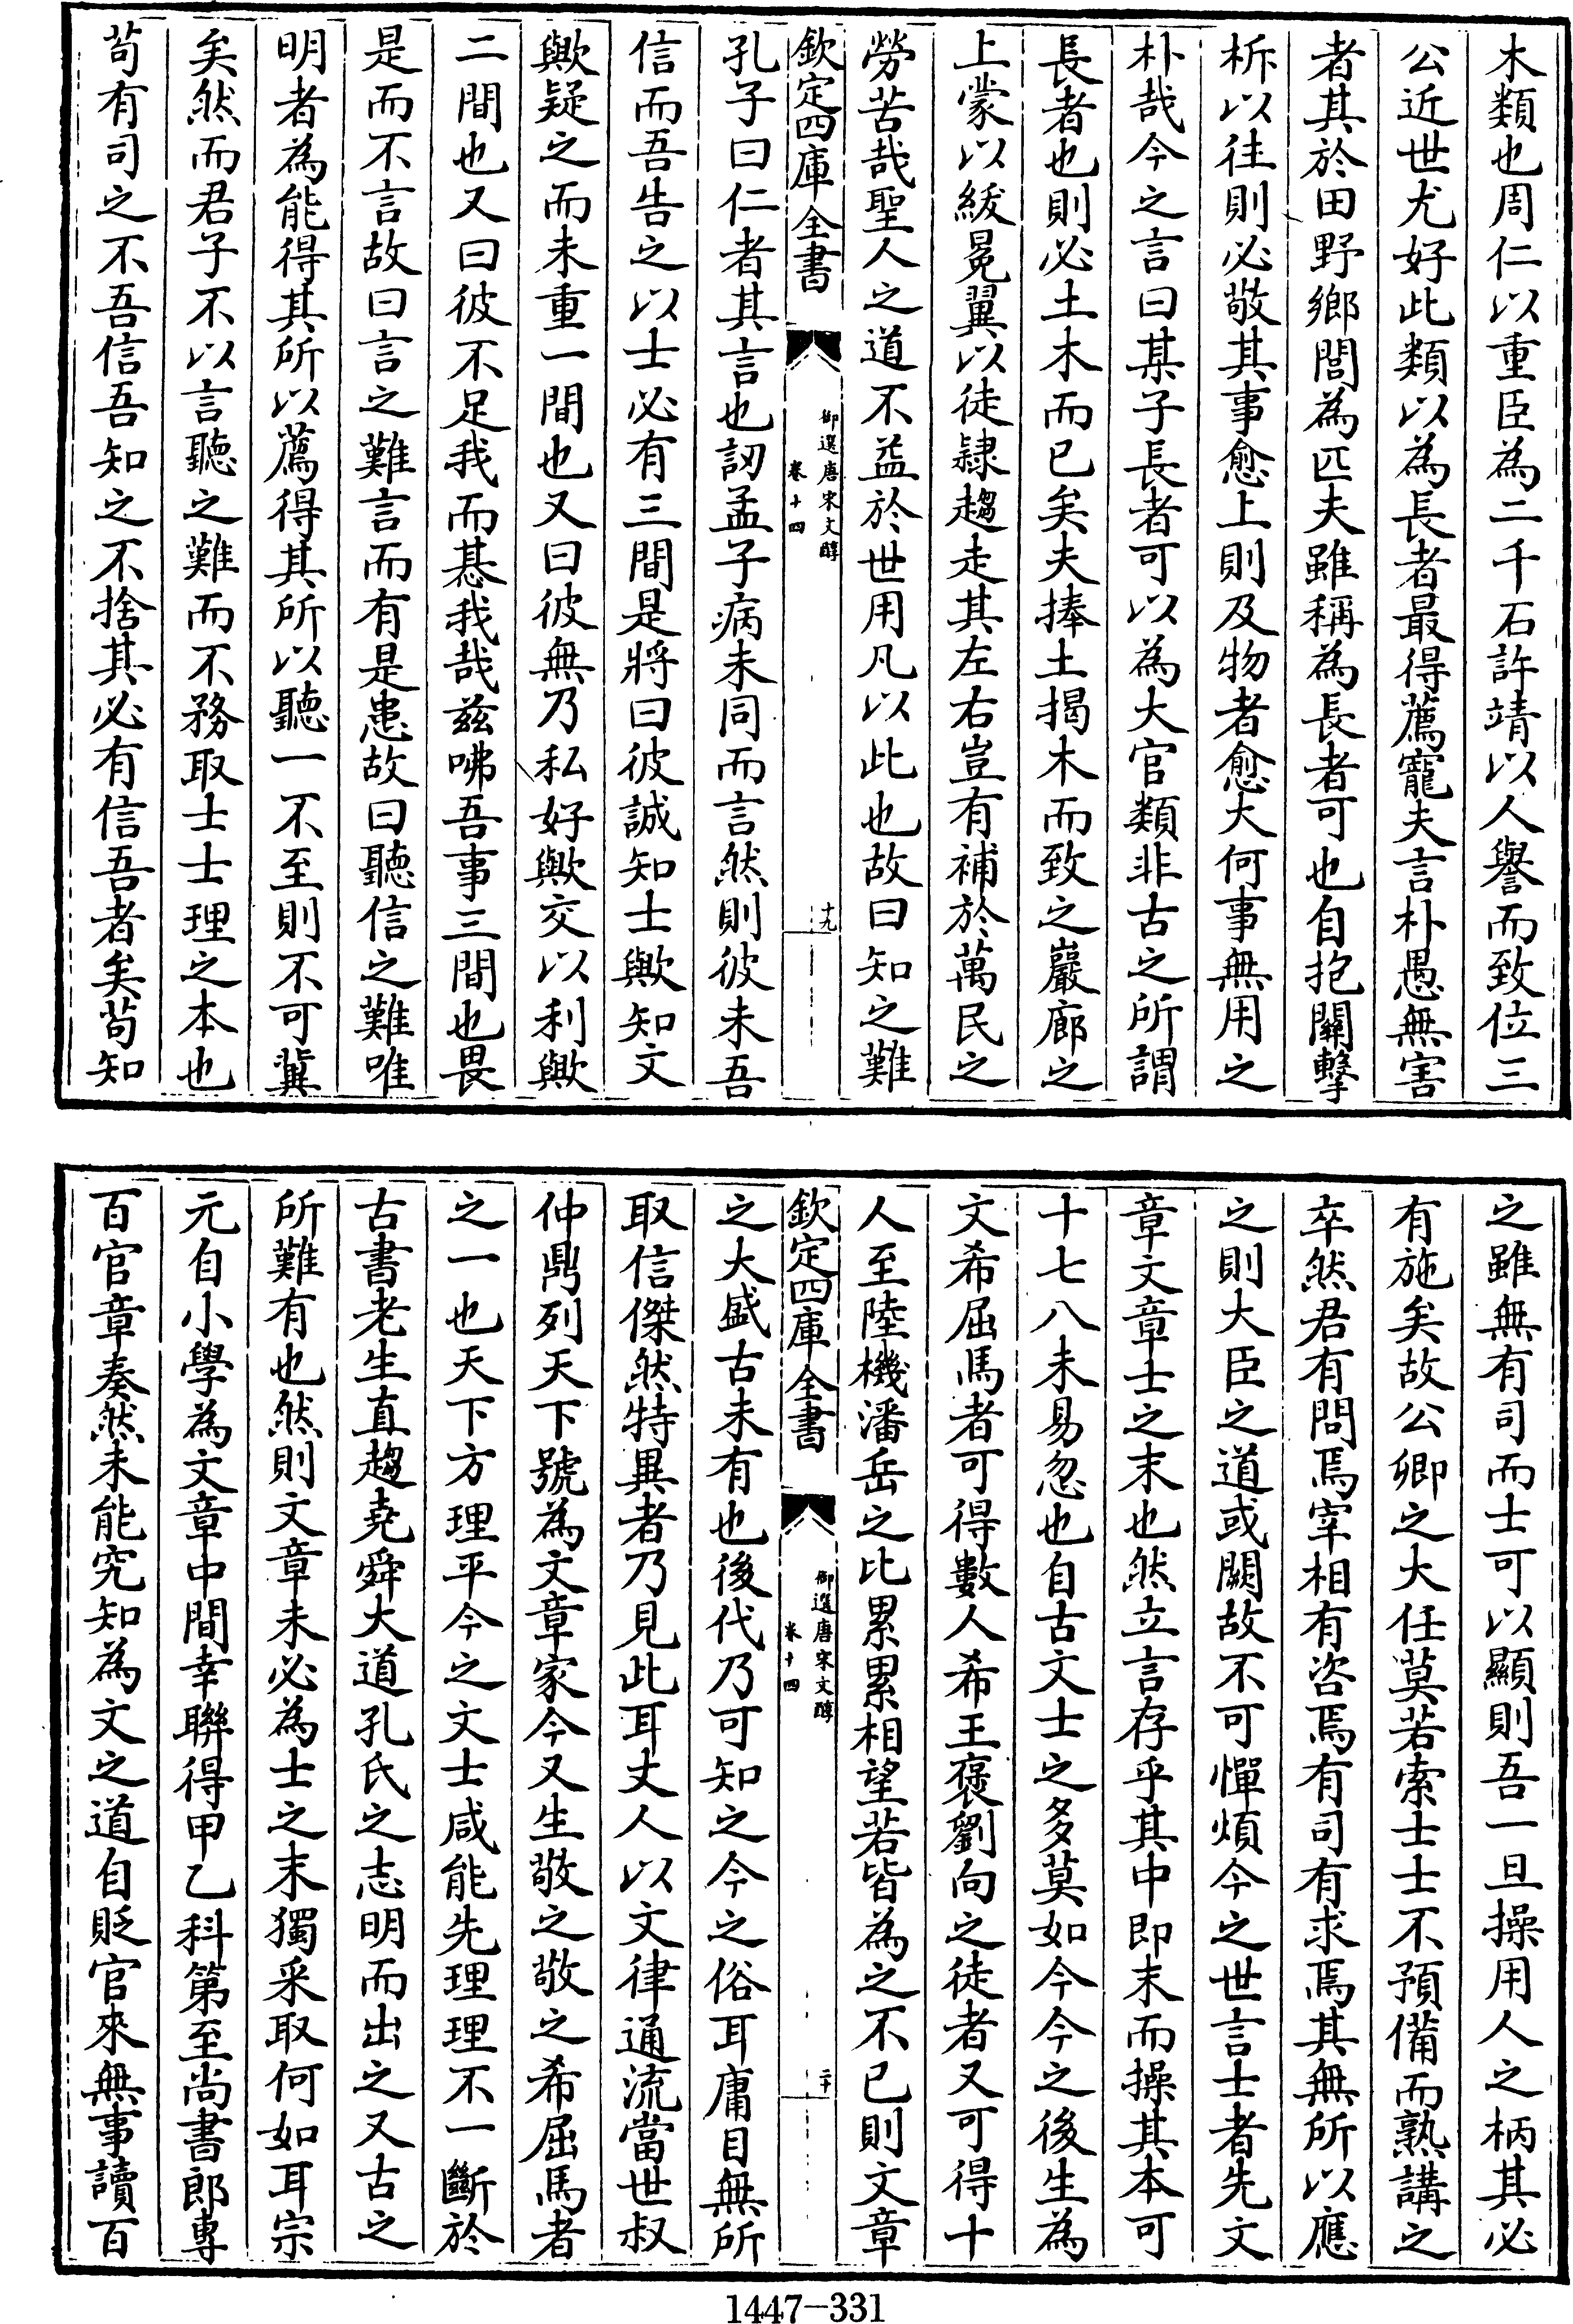 木類也周仁以重臣為二千石許靖以人譽而致位三
公近世尤好此類以為長者最得薦寵夫言朴愚無害
者其於田野鄉閭為匹夫雖稱為長者可也自抱關擊
柝以往則必敬其事愈上則及物者愈大何事無用之
朴哉今之言曰某子長者可以為大官類非古之所謂
長者也則必土木而已矣夫捧土揭木而致之巖廊之
上蒙以紱冕翼以徒隸趨走其左右豈有補於萬民之
勞苦哉聖人之道不益於世用凡以此也故曰知之難
欽定四庫全書
御選唐宋文醇
卷十四
十九
孔子曰仁者其言也訒孟子病未同而言然則彼未吾
信而吾告之以士必有三間是將曰彼誠知士歟知文
歟疑之而未重一間也又曰彼無乃私好歟交以利歟
二間也又曰彼不足我而惎我哉茲咈吾事三間也畏
是而不言故曰言之難言而有是患故曰聽信之難唯
明者為能得其所以薦得其所以聽一不至則不可冀
矣然而君子不以言聽之難而不務取士士理之本也
茍有司之不吾信吾知之不捨其必有信吾者矣茍知
之雖無有司而士可以顯則吾一旦操用人之柄其必
有施矣故公卿之大任莫若索士士不預備而熟講之
卒然君有問焉宰相有咨焉有司有求焉其無所以應
之則大臣之道或闕故不可憚煩今之世言士者先文
章文章士之末也然立言存乎其中即末而操其本可
十七八未易忽也自古文士之多莫如今今之後生為
文希屈馬者可得數人希王褒劉向之徒者又可得十
人至陸機潘岳之比累累相望若皆為之不已則文章
欽定四庫全書
御選唐宋文醇
卷十四
二十
之大盛古未有也後代乃可知之今之俗耳庸目無所
取信傑然特異者乃見此耳丈人以文律通流當世叔
仲鼎列天下號為文章家今又生敬之敬之希屈馬者
之一也天下方理平今之文士咸能先理理不一斷於
古書老生直趨堯舜大道孔氏之志明而出之又古之
所難有也然則文章未必為士之末獨采取何如耳宗
元自小學為文章中間幸聯得甲乙科第至尚書郎專
百官章奏然未能究知為文之道自貶官來無事讀百
1447-331